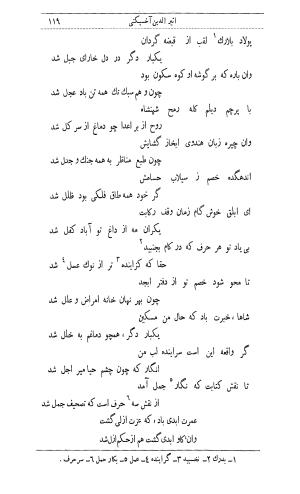 اثیر الدین آخسیکتی ۱۱۹
پولاد بلارك۱ لقب از قبضه گردان
یکبار دگر در دل خارای جبل شد
وان باره که بر گوشه او کوه سکون بود
چون وهم سبك تك همه تن باد عجل شد
با پرچم دیلم کله رمح شهنشاه
روح از بر اعدا چو دماغ از سر کل شد
وان چیره زبان هندوی ابخاز گشایش
چون طبع مناظر به همه جنك و جدل شد
اندهگده خصم ز سیلاب حسامش
گر خود همه طاق فلکی بود طلل شد
ای ابلق خوش گام زمان وقف رکابت
یکران مه از داغ تو آباد کفل شد
بی یاد تو هر حرف که در کام بجنبید۲
حقا که گزاینده۳ تر از نوك عسل۴ شد
تا محو شود خصم تو از دفتر ابجد
چون بهر نهان خانه امراض و علل شد
شاها، خبرت باد که حال من مسکین
یکبار دیگر، همچو دماغم به خلل شد
گر واقعه این است سراینده لب من
انگار که چون چشم حیا میر اجل شد
تا نقش کتابت که نگار۵ جمل آمد
از نقش سه۶ حرف است که تصحیف جمل شد
عمرت ابدی باد، که عزت ازلی گشت
وان کاو ابدی گشت هم از حکم ازل شد
۱ــ بدرك ۲ــ نصیبه ۳ــ گراینده ۴ــ عمل ۵ــ بکار حمل ۶ــ سر حرف .